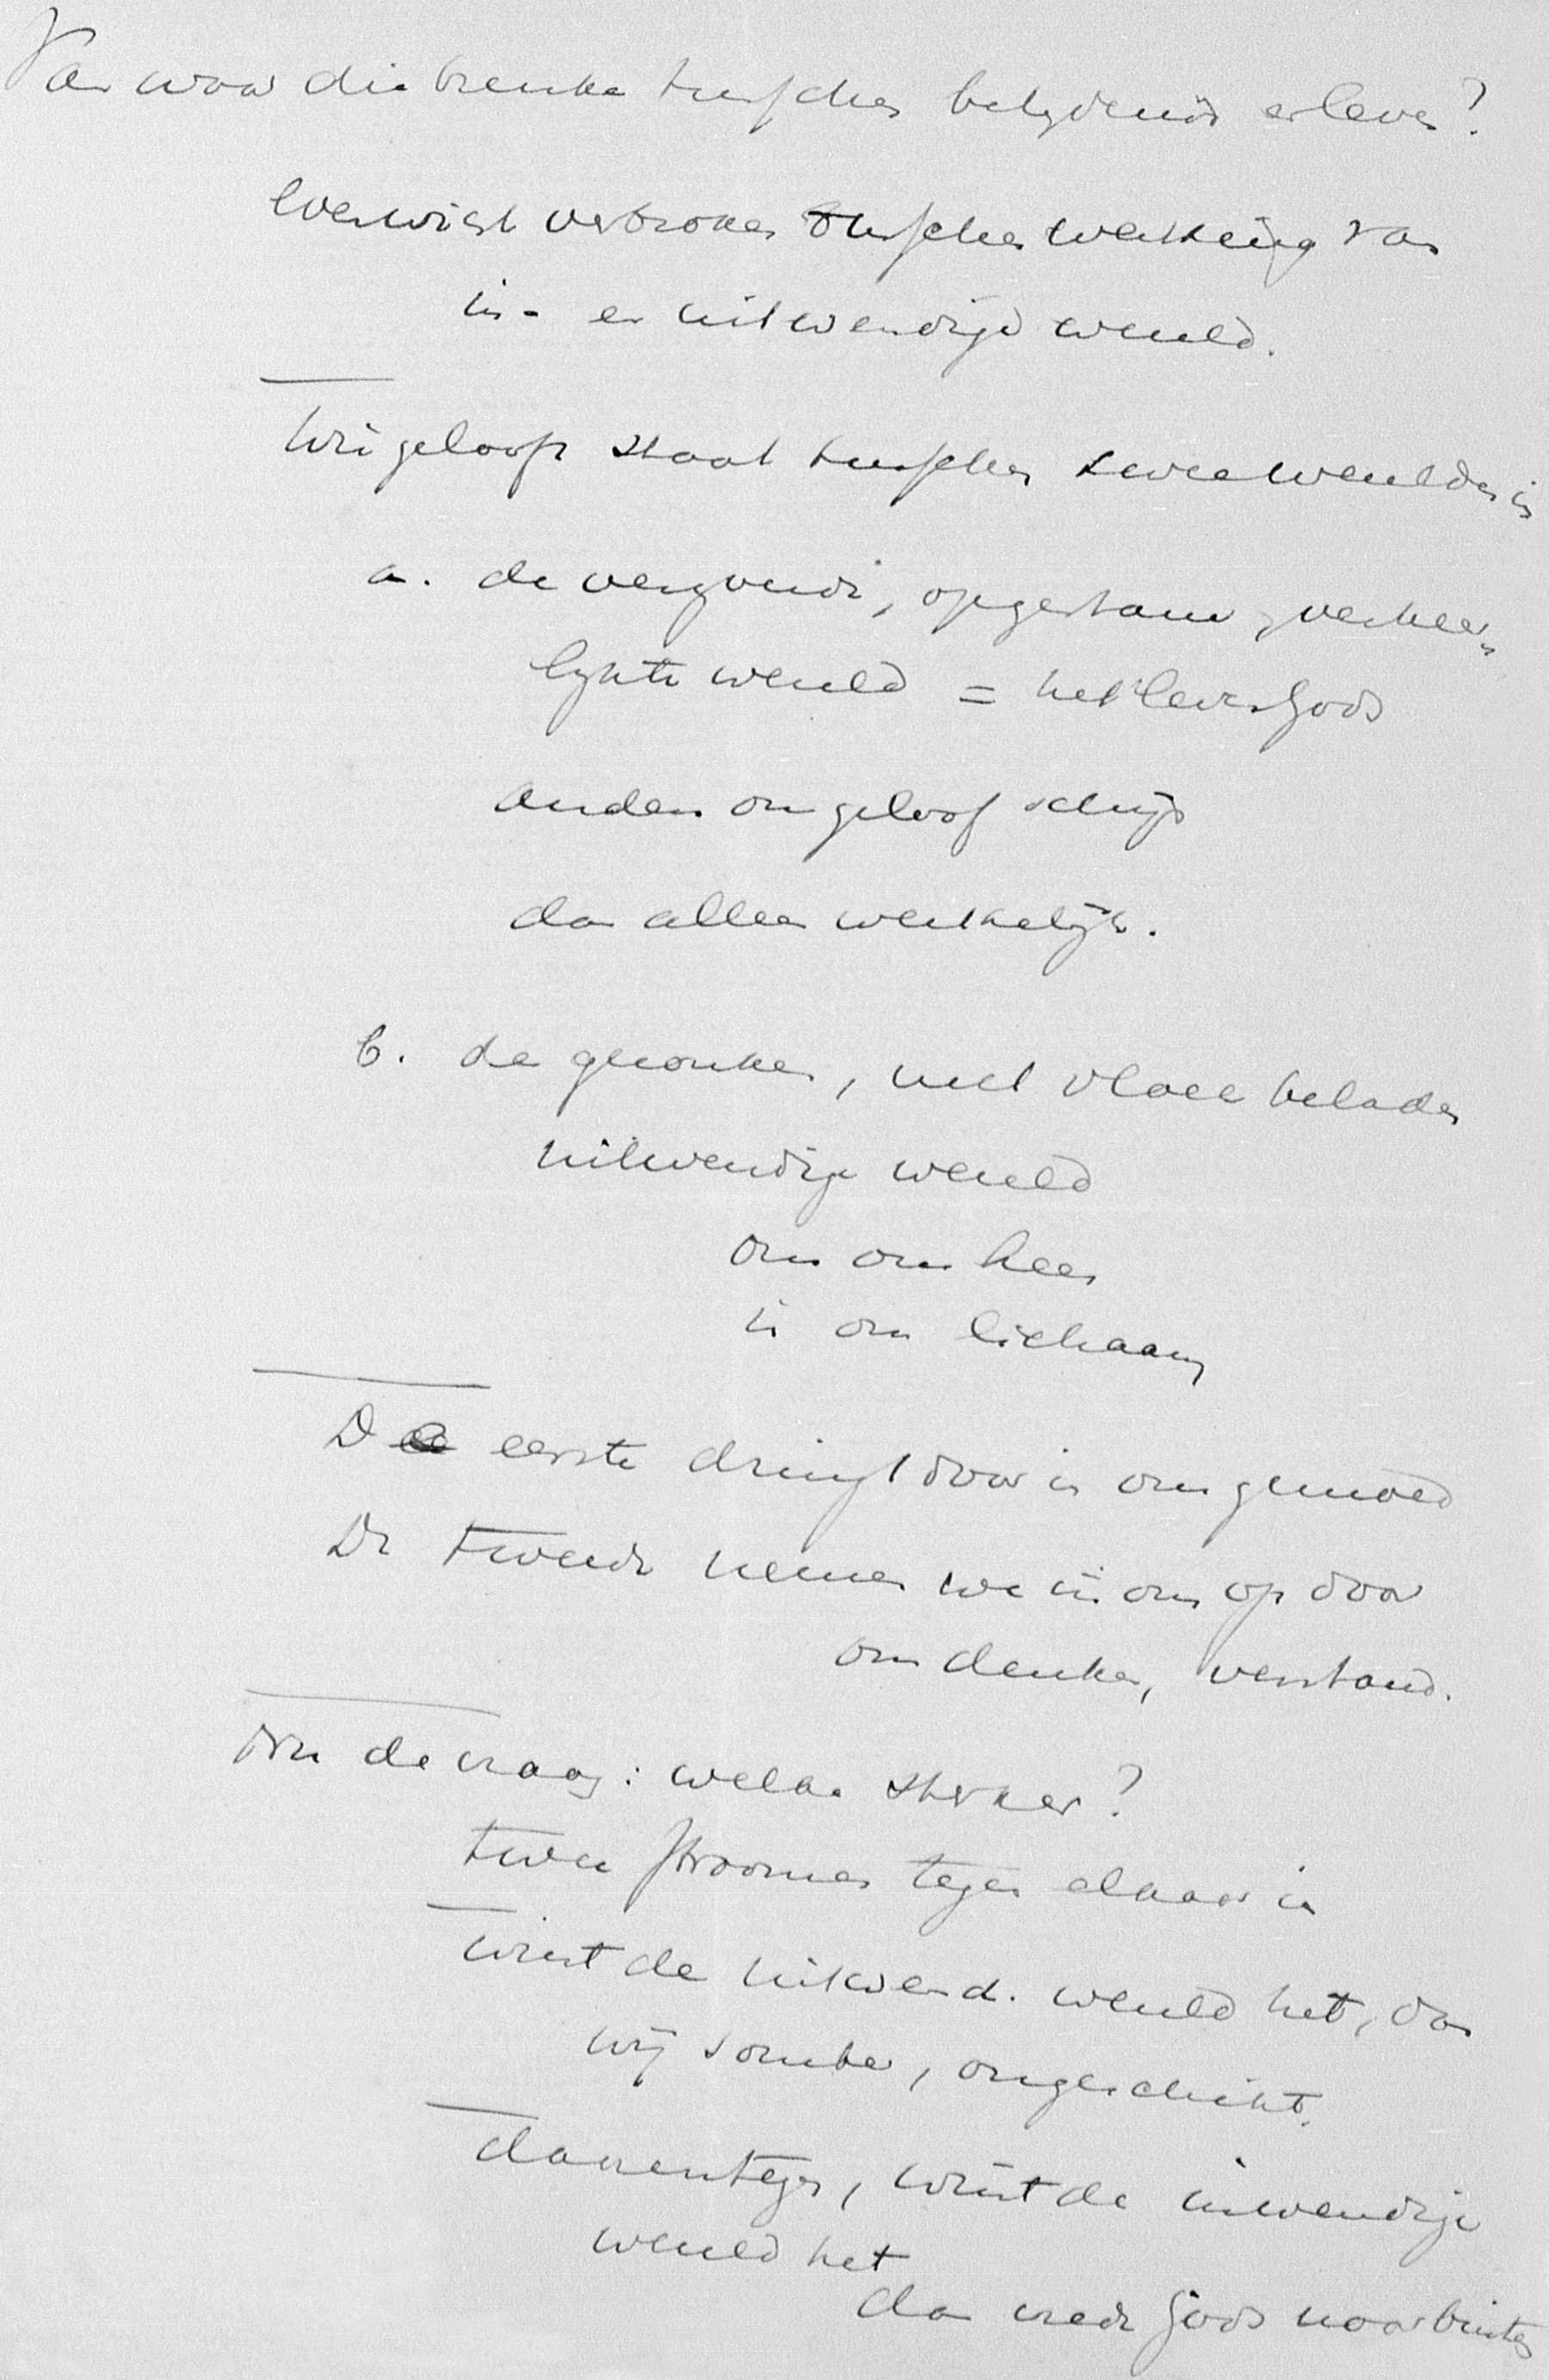 Van waar die breuke tusschen belydenis en leven?
Evenwicht verbroken tusschen werking van
in- en uitwendige wereld.
Wie gelooft staat tusschen twee werelden in
a. de verzoende, opgestane, verheer-
lykte wereld = het leven Gods
anders ons geloof schijn
dan alleen werkelijk.
b. de gezonken, met vloek beladen
uitwendige wereld
om ons heen
in ons lichaam
De eerste dringt door in ons gemoed
De tweede nemen we in ons op door
ons denken, verstand.
Nu de vraag: welke sterker?
twee stroomen tegen elkaar in
wint de uitwend. wereld het, dan
wij somber, ongeschikt.
daarentegen, wint de inwendige
wereld het
dan vrede Gods naar binnen